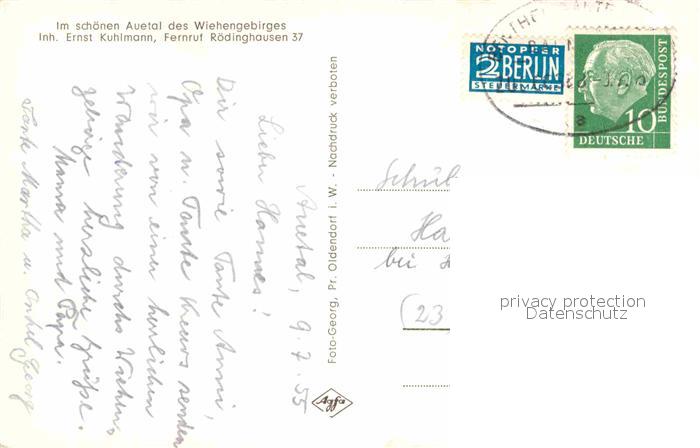 Im schönen Auetal des Wiehengebirges
Inh. Ernst Kuhlmann, Fernruf Rödinghausen 37
Auetal, 9.7.55
Lieber Hannes!
Dir sowie Tante Anni,
Opa u. Tante senden
wir von einer herrlichen
Wanderung durchs Wiehen-
gebirge herzliche Grüße.
Mama und Papa.
Tante Martha u. Onkel Georg
Foto-Georg, Pr. Oldendorf i. W. - Nachdruck verboten
Agfa
NOTOPFER
2 BERLIN
STEUERMARKE
DEUTSCHE
BUNDESPOST
10
a
Schül
Ha
bei
(23
privacy protection
Datenschutz